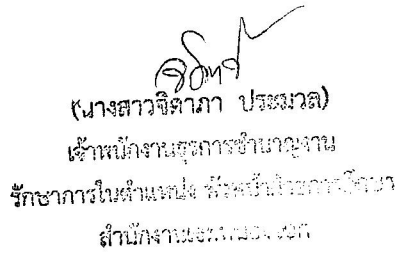 (นางสาวจิดาภา ประมวล)
เจ้าพนักงานธุรการชำนาญงาน
รักษาการในตำแหน่ง หัวหน้าฝ่ายการศึกษา
สำนักงานเขต